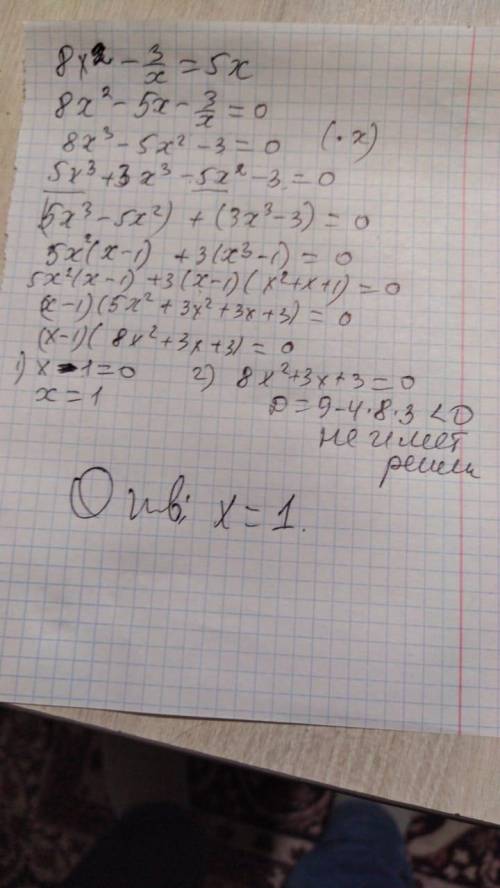 8x² - 3/x = 5x
8x² - 5x - 3/x = 0
8x³ - 5x² - 3 = 0 (· x)
5x³ + 3x³ - 5x² - 3 = 0
(5x³ - 5x²) + (3x³ - 3) = 0
5x²(x-1) + 3(x³-1) = 0
5x²(x-1) + 3(x-1)(x²+x+1) = 0
(x-1)(5x² + 3x² + 3x + 3) = 0
(x-1)(8x² + 3x + 3) = 0
1) x - 1 = 0 2) 8x² + 3x + 3 = 0
x = 1 D = 9 - 4·8·3 < 0
не имеет
решен
Отв: x = 1.